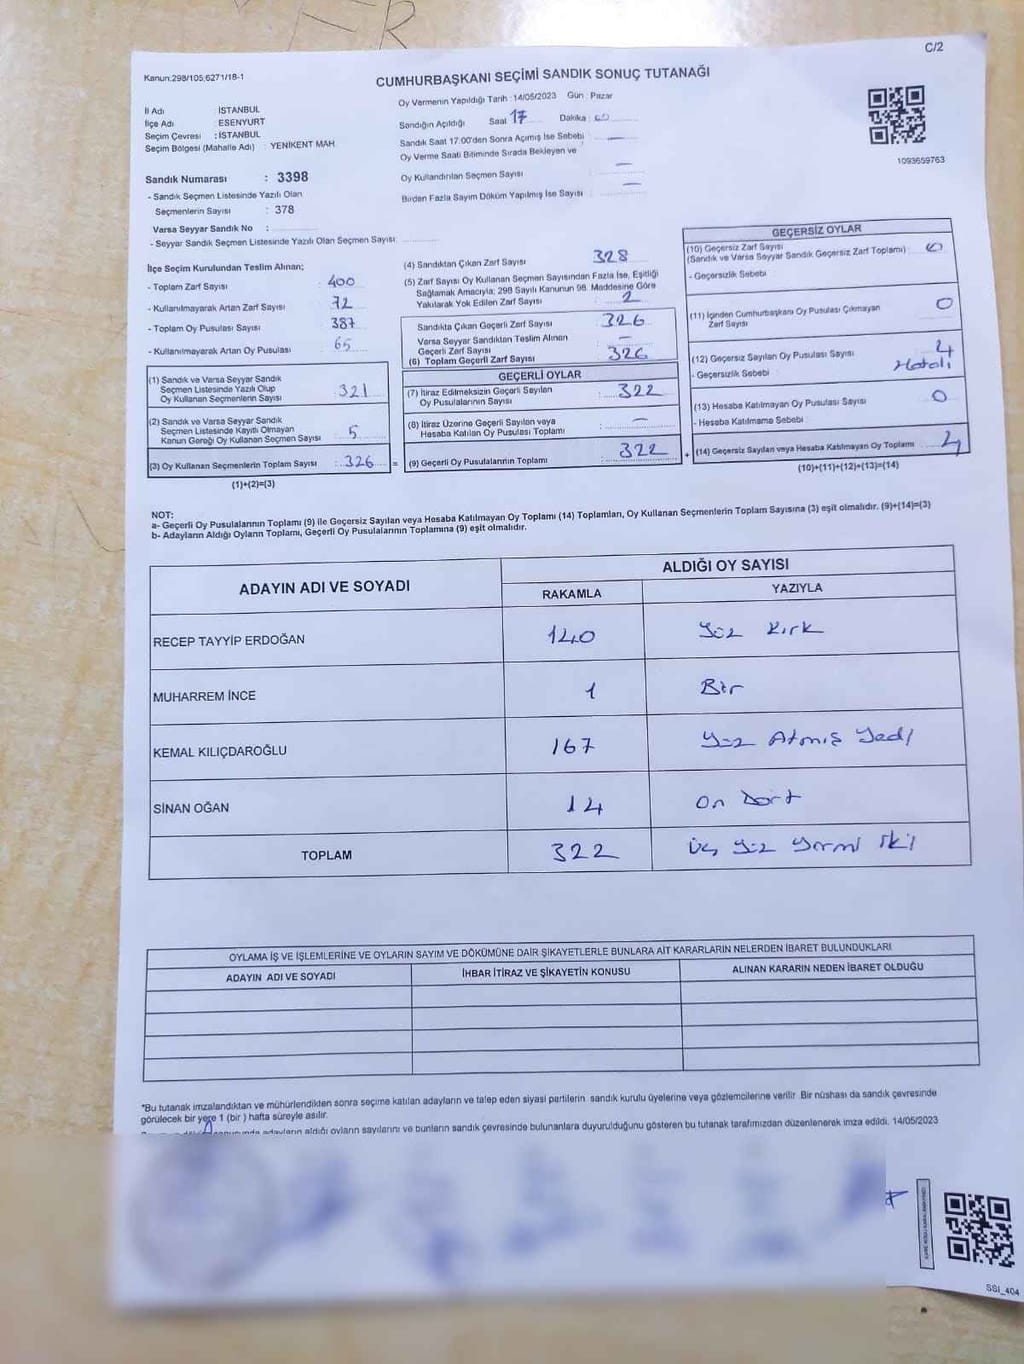 C/2
Kanun:298/105,6271/18-1
CUMHURBAŞKANI SEÇİMİ SANDIK SONUÇ TUTANAĞI
İl Adı : İSTANBUL
İlçe Adı : ESENYURT
Seçim Çevresi : İSTANBUL
Seçim Bölgesi (Mahalle Adı) : YENİKENT MAH.
Sandık Numarası : 3398
- Sandık Seçmen Listesinde Yazılı Olan
Seçmenlerin Sayısı : 378
Varsa Seyyar Sandık No :
- Seyyar Sandık Seçmen Listesinde Yazılı Olan Seçmen Sayısı
Oy Vermenin Yapıldığı Tarih : 14/05/2023 Gün : Pazar
Sandığın Açıldığı Saat 17 Dakika : 00
Sandık Saat 17:00'den Sonra Açılmış İse Sebebi : —
Oy Verme Saati Bitiminde Sırada Bekleyen ve
Oy Kullandırılan Seçmen Sayısı : —
Birden Fazla Sayım Döküm Yapılmış İse Sayısı : —
1093659763
İlçe Seçim Kurulundan Teslim Alınan;
- Toplam Zarf Sayısı : 400
- Kullanılmayarak Artan Zarf Sayısı : 72
- Toplam Oy Pusulası Sayısı : 387
- Kullanılmayarak Artan Oy Pusulası : 65
(1) Sandık ve Varsa Seyyar Sandık
Seçmen Listesinde Yazılı Olup
Oy Kullanan Seçmenlerin Sayısı : 321
(2) Sandık ve Varsa Seyyar Sandık
Seçmen Listesinde Kayıtlı Olmayan
Kanun Gereği Oy Kullanan Seçmen Sayısı : 5
(3) Oy Kullanan Seçmenlerin Toplam Sayısı : 326 =
(1)+(2)=(3)
(4) Sandıktan Çıkan Zarf Sayısı : 328
(5) Zarf Sayısı Oy Kullanan Seçmen Sayısından Fazla İse, Eşitliği
Sağlamak Amacıyla; 298 Sayılı Kanunun 98. Maddesine Göre
Yakılarak Yok Edilen Zarf Sayısı : 2
Sandıkta Çıkan Geçerli Zarf Sayısı : 326
Varsa Seyyar Sandıktan Teslim Alınan
Geçerli Zarf Sayısı : —
(6) Toplam Geçerli Zarf Sayısı : 326
GEÇERLİ OYLAR
(7) İtiraz Edilmeksizin Geçerli Sayılan
Oy Pusulalarının Sayısı : 322
(8) İtiraz Üzerine Geçerli Sayılan veya
Hesaba Katılan Oy Pusulası Toplamı : —
(9) Geçerli Oy Pusulalarının Toplamı : 322 +
GEÇERSİZ OYLAR
(10) Geçersiz Zarf Sayısı
(Sandık ve Varsa Seyyar Sandık Geçersiz Zarf Toplamı) : 0
- Geçersizlik Sebebi
(11) İçinden Cumhurbaşkanı Oy Pusulası Çıkmayan
Zarf Sayısı : 0
(12) Geçersiz Sayılan Oy Pusulası Sayısı : 4
- Geçersizlik Sebebi Hatalı
(13) Hesaba Katılmayan Oy Pusulası Sayısı : 0
- Hesaba Katılmama Sebebi
(14) Geçersiz Sayılan veya Hesaba Katılmayan Oy Toplamı : 4
(10)+(11)+(12)+(13)=(14)
NOT:
a- Geçerli Oy Pusulalarının Toplamı (9) ile Geçersiz Sayılan veya Hesaba Katılmayan Oy Toplamı (14) Toplamları, Oy Kullanan Seçmenlerin Toplam Sayısına (3) eşit olmalıdır. (9)+(14)=(3)
b- Adayların Aldığı Oyların Toplamı, Geçerli Oy Pusulalarının Toplamına (9) eşit olmalıdır.
ADAYIN ADI VE SOYADI ALDIĞI OY SAYISI
RAKAMLA YAZIYLA
RECEP TAYYİP ERDOĞAN 140 Yüz Kırk
MUHARREM İNCE 1 Bir
KEMAL KILIÇDAROĞLU 167 Yüz Atmış Yedi
SİNAN OĞAN 14 On Dört
TOPLAM 322 Üç Yüz Yirmi İki
OYLAMA İŞ VE İŞLEMLERİNE VE OYLARIN SAYIM VE DÖKÜMÜNE DAİR ŞİKAYETLERLE BUNLARA AİT KARARLARIN NELERDEN İBARET BULUNDUKLARI
ADAYIN ADI VE SOYADI İHBAR İTİRAZ VE ŞİKAYETİN KONUSU ALINAN KARARIN NEDEN İBARET OLDUĞU
*Bu tutanak imzalandıktan ve mühürlendikten sonra seçime katılan adayların ve talep eden siyasi partilerin sandık kurulu üyelerine veya gözlemcilerine verilir. Bir nüshası da sandık çevresinde
görülecek bir yere 1 (bir ) hafta süreyle asılır.
adayların aldığı oyların sayılarını ve bunların sandık çevresinde bulunanlara duyurulduğunu gösteren bu tutanak tarafımızdan düzenlenerek imza edildi. 14/05/2023
SSI_404